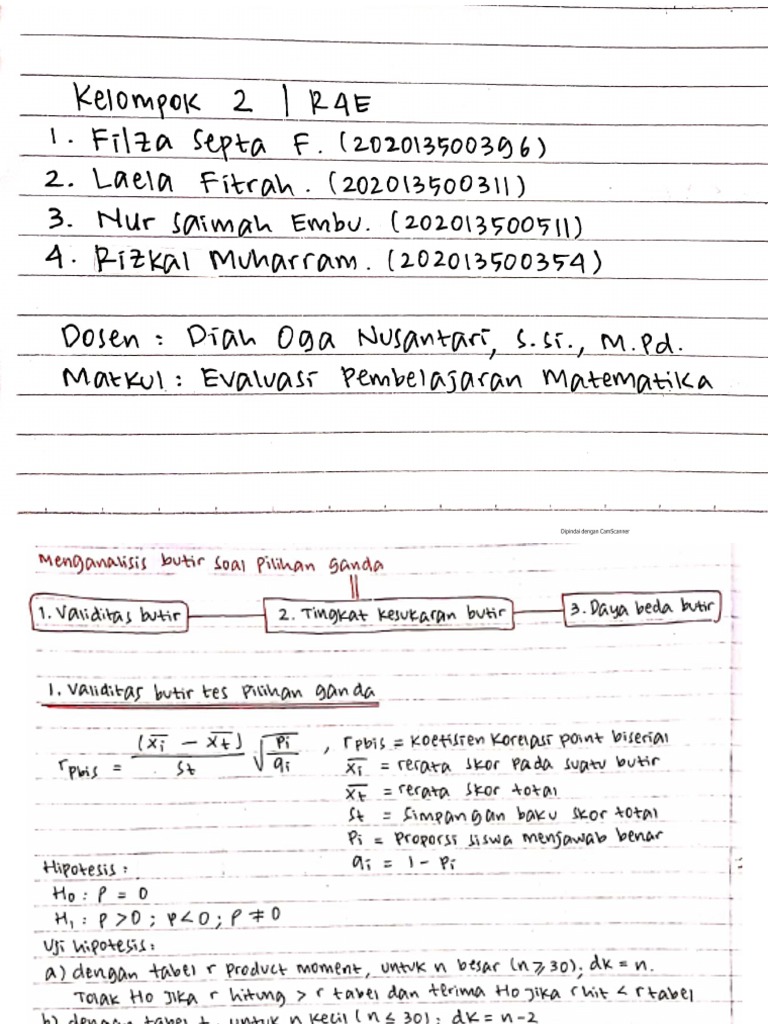 Kelompok 2 | R4E
1. Filza Septa F. (202013500396)
2. Laela Fitrah. (202013500311)
3. Nur Saimah Embu. (202013500511)
4. Rizkal Muharram. (202013500354)
Dosen : Diah Oga Nusantari, S.Si., M.Pd.
Matkul : Evaluasi Pembelajaran Matematika
Dipindai dengan CamScanner
Menganalisis butir soal pilihan ganda
1. Validitas butir
2. Tingkat kesukaran butir
3. Daya beda butir
1. Validitas butir tes pilihan ganda
r_pbis = (x̄i − x̄t) / St √(Pi / qi) , rpbis = koefisien korelasi point biserial
x̄i = rerata skor pada suatu butir
x̄t = rerata skor total
St = simpangan baku skor total
Pi = proporsi siswa menjawab benar
qi = 1 - Pi
Hipotesis :
H₀ : ρ = 0
H₁ : ρ > 0 ; ρ < 0 ; ρ ≠ 0
Uji hipotesis :
a) dengan tabel r product moment, untuk n besar (n ≥ 30); dk = n.
Tolak Ho jika r hitung > r tabel dan terima Ho jika r hit < r tabel
b) dengan tabel t, untuk n kecil (n ≤ 30); dk = n-2